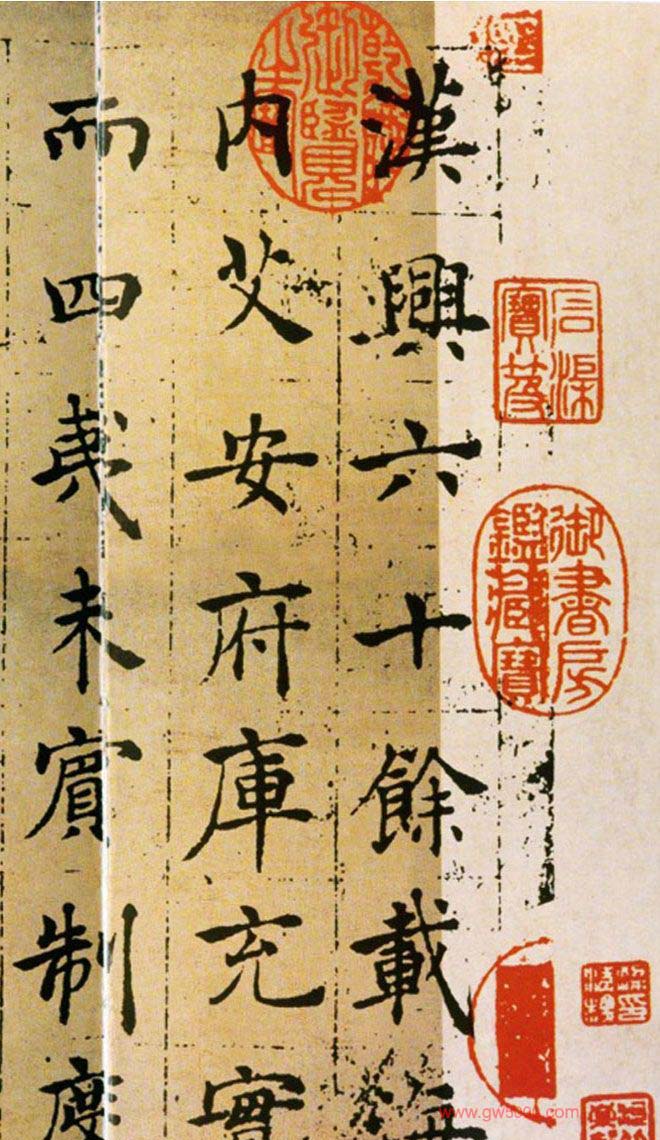 石渠寶笈
御書房鑑藏寶
乾隆御覽之寶
漢興六十餘載海
内艾安府庫充實
而四夷未賓制度